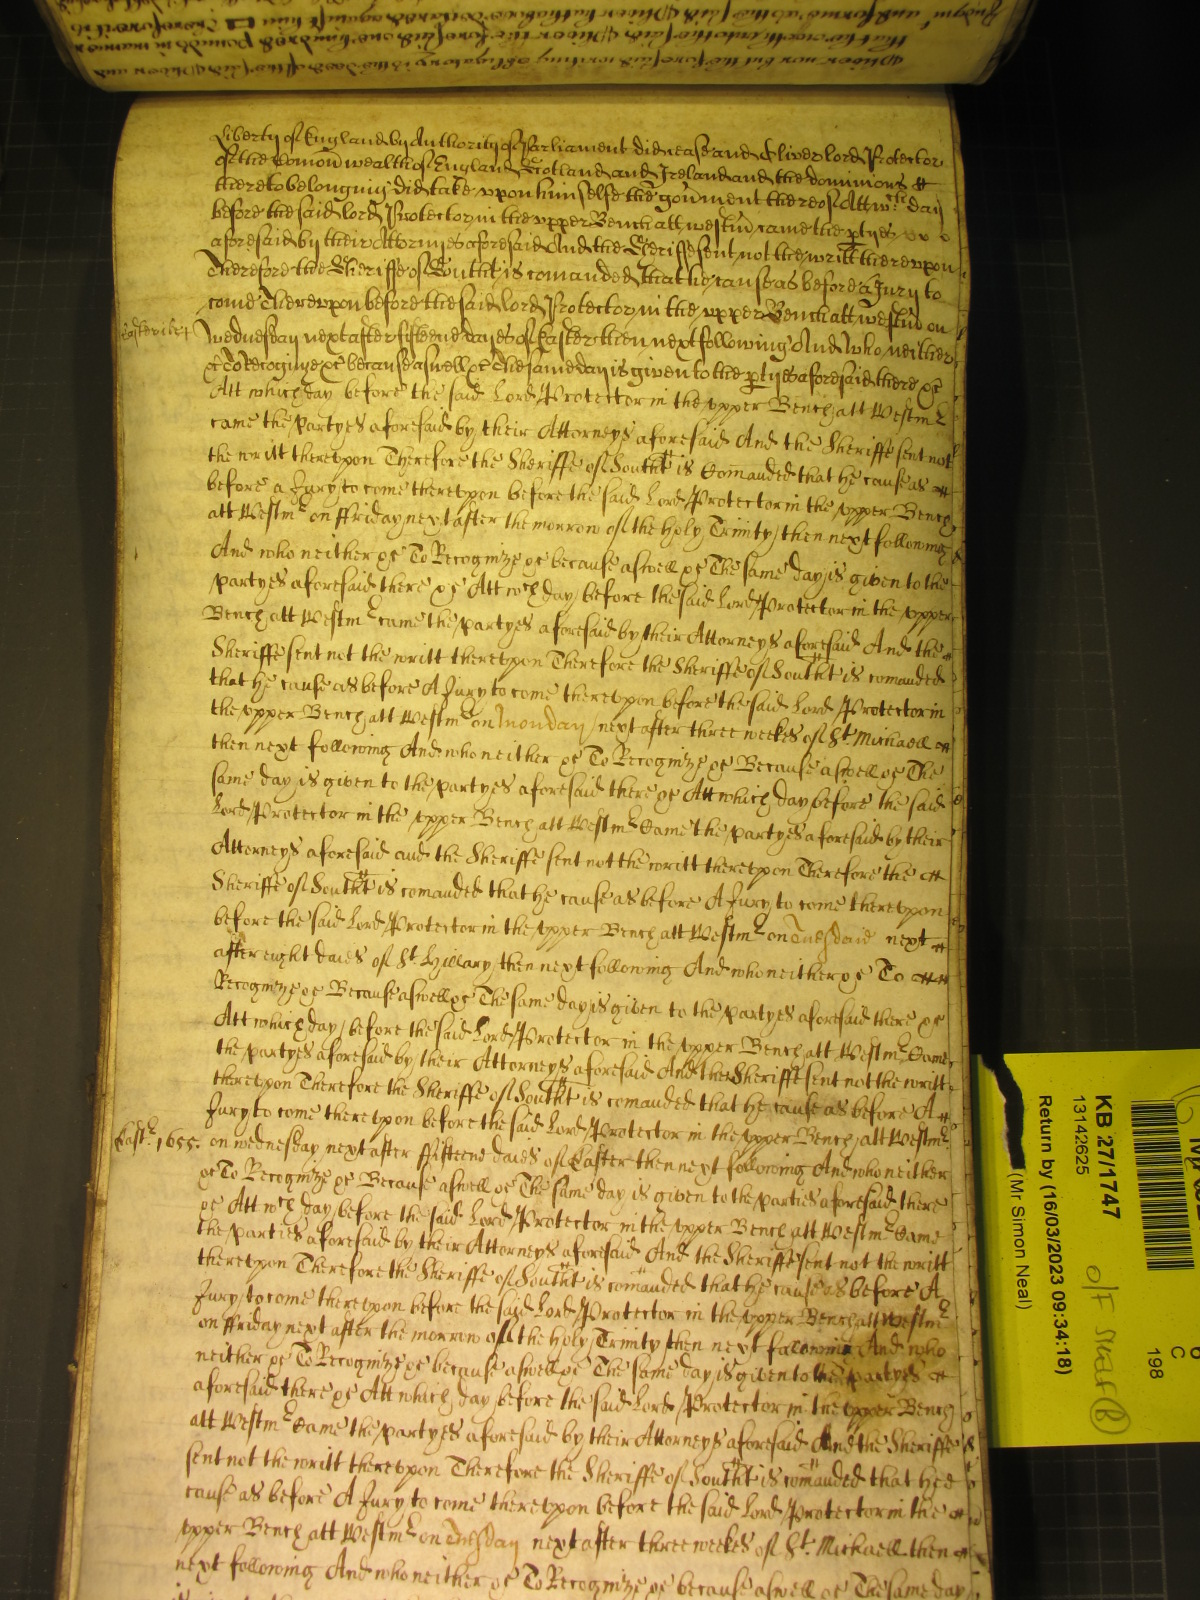 Liberty of England by Authority of Parliament did cease and Oliver lord Protector
of the Comon wealth of England Scotland and Ireland and the dominions
thereto belonging did take uppon himselfe the gov'ment thereof Att wch day
before the said lord Protector in the upper Bench att westm came the ptyes
aforesaid by their Attornyes aforesaid And the Sheriffe sent not the writt thereupon
Therefore the Sheriffe of Southt is comanded that he cause as before a Jury to
come Thereupon before the said lord Protector in the upper Bench att westm on
wednesday next after fifteene dayes of Easter then next following And who neither
&c To Recognize &c because aswell &c The same day is given to the ptyes aforesaid there &c
Att which day before the said Lord Protector in the upper Bench att Westmr
came the partyes aforesaid by their Attorneys aforesaid And the Sheriffe sent not
the writt thereupon Therefore the Sheriffe of Southt is Comanded that he cause as
before a Jury to come thereupon before the said Lord Protector in the upper Bench
att Westmr on ffriday next after the morrow of the Holy Trinity then next following
And who neither &c To Recognize &c because aswell &c The same day is given to the
partyes aforesaid there &c Att wch day before the said Lord Protector in the upper
Bench att Westmr came the partyes aforesaid by their Attorneys aforesaid And the
Sheriffe sent not the writt thereupon Therefore the Sheriffe of Southt is comanded
that he cause as before A Jury to come thereupon before the said Lord Protector in
the upper Bench att Westmr on Monday next after three weekes of St. Michaell
then next following And who neither &c To Recognize &c Because aswell &c The
same day is given to the partyes aforesaid there &c Att which day before the said
Lord Protector in the upper Bench att Westmr Came the partyes aforesaid by their
Attorneys aforesaid and the Sheriffe sent not the writt thereupon Therefore the
Sheriffe of Southt is comanded that he cause as before A Jury to come thereupon
before the said Lord Protector in the upper Bench att Westmr on Tuesdaie next
after eight daies of St. Hillary then next following And who neither &c To
Recognize &c Because aswell &c The same day is given to the partyes aforesaid there &c
Att which day before the said Lord Protector in the upper Bench att Westmr Came
the partyes aforesaid by their Attorneys aforesaid And the Sheriffe sent not the writt
thereupon Therefore the Sheriffe of Southt is comanded that he cause as before A
Jury to come thereupon before the said Lord Protector in the upper Bench att Westmr
Eastr 1655. on wednesday next after ffifteene daies of Easter then next following And who neither
&c To Recognize &c Because aswell &c The same day is given to the parties aforesaid there
&c Att wch day before the said Lord Protector in the upper Bench att Westmr Came
the parties aforesaid by their Attorneys aforesaid And the Sheriffe sent not the writt
thereupon Therefore the Sheriffe of Southt is comanded that he cause as before A
Jury to come thereupon before the said Lord Protector in the upper Bench att Westmr
on ffriday next after the morrow of the Holy Trinity then next following And who
neither &c To Recognize &c because aswell &c The same day is given to the partyes
aforesaid there &c Att which day before the said Lord Protector in the upper Bench
att Westmr Came the partyes aforesaid by their Attorneys aforesaid And the Sheriffe
sent not the writt thereupon Therefore the Sheriffe of Southt is comanded that hee
cause as before A Jury to come thereupon before the said Lord Protector in the
upper Bench att Westmr on Tuesday next after three weekes of St. Michaell then
next following And who neither &c To Recognize &c because aswell &c The same day
KB 27/1747
13142625
Return by (16/03/2023 09:34:18)
(Mr Simon Neal)
C
198